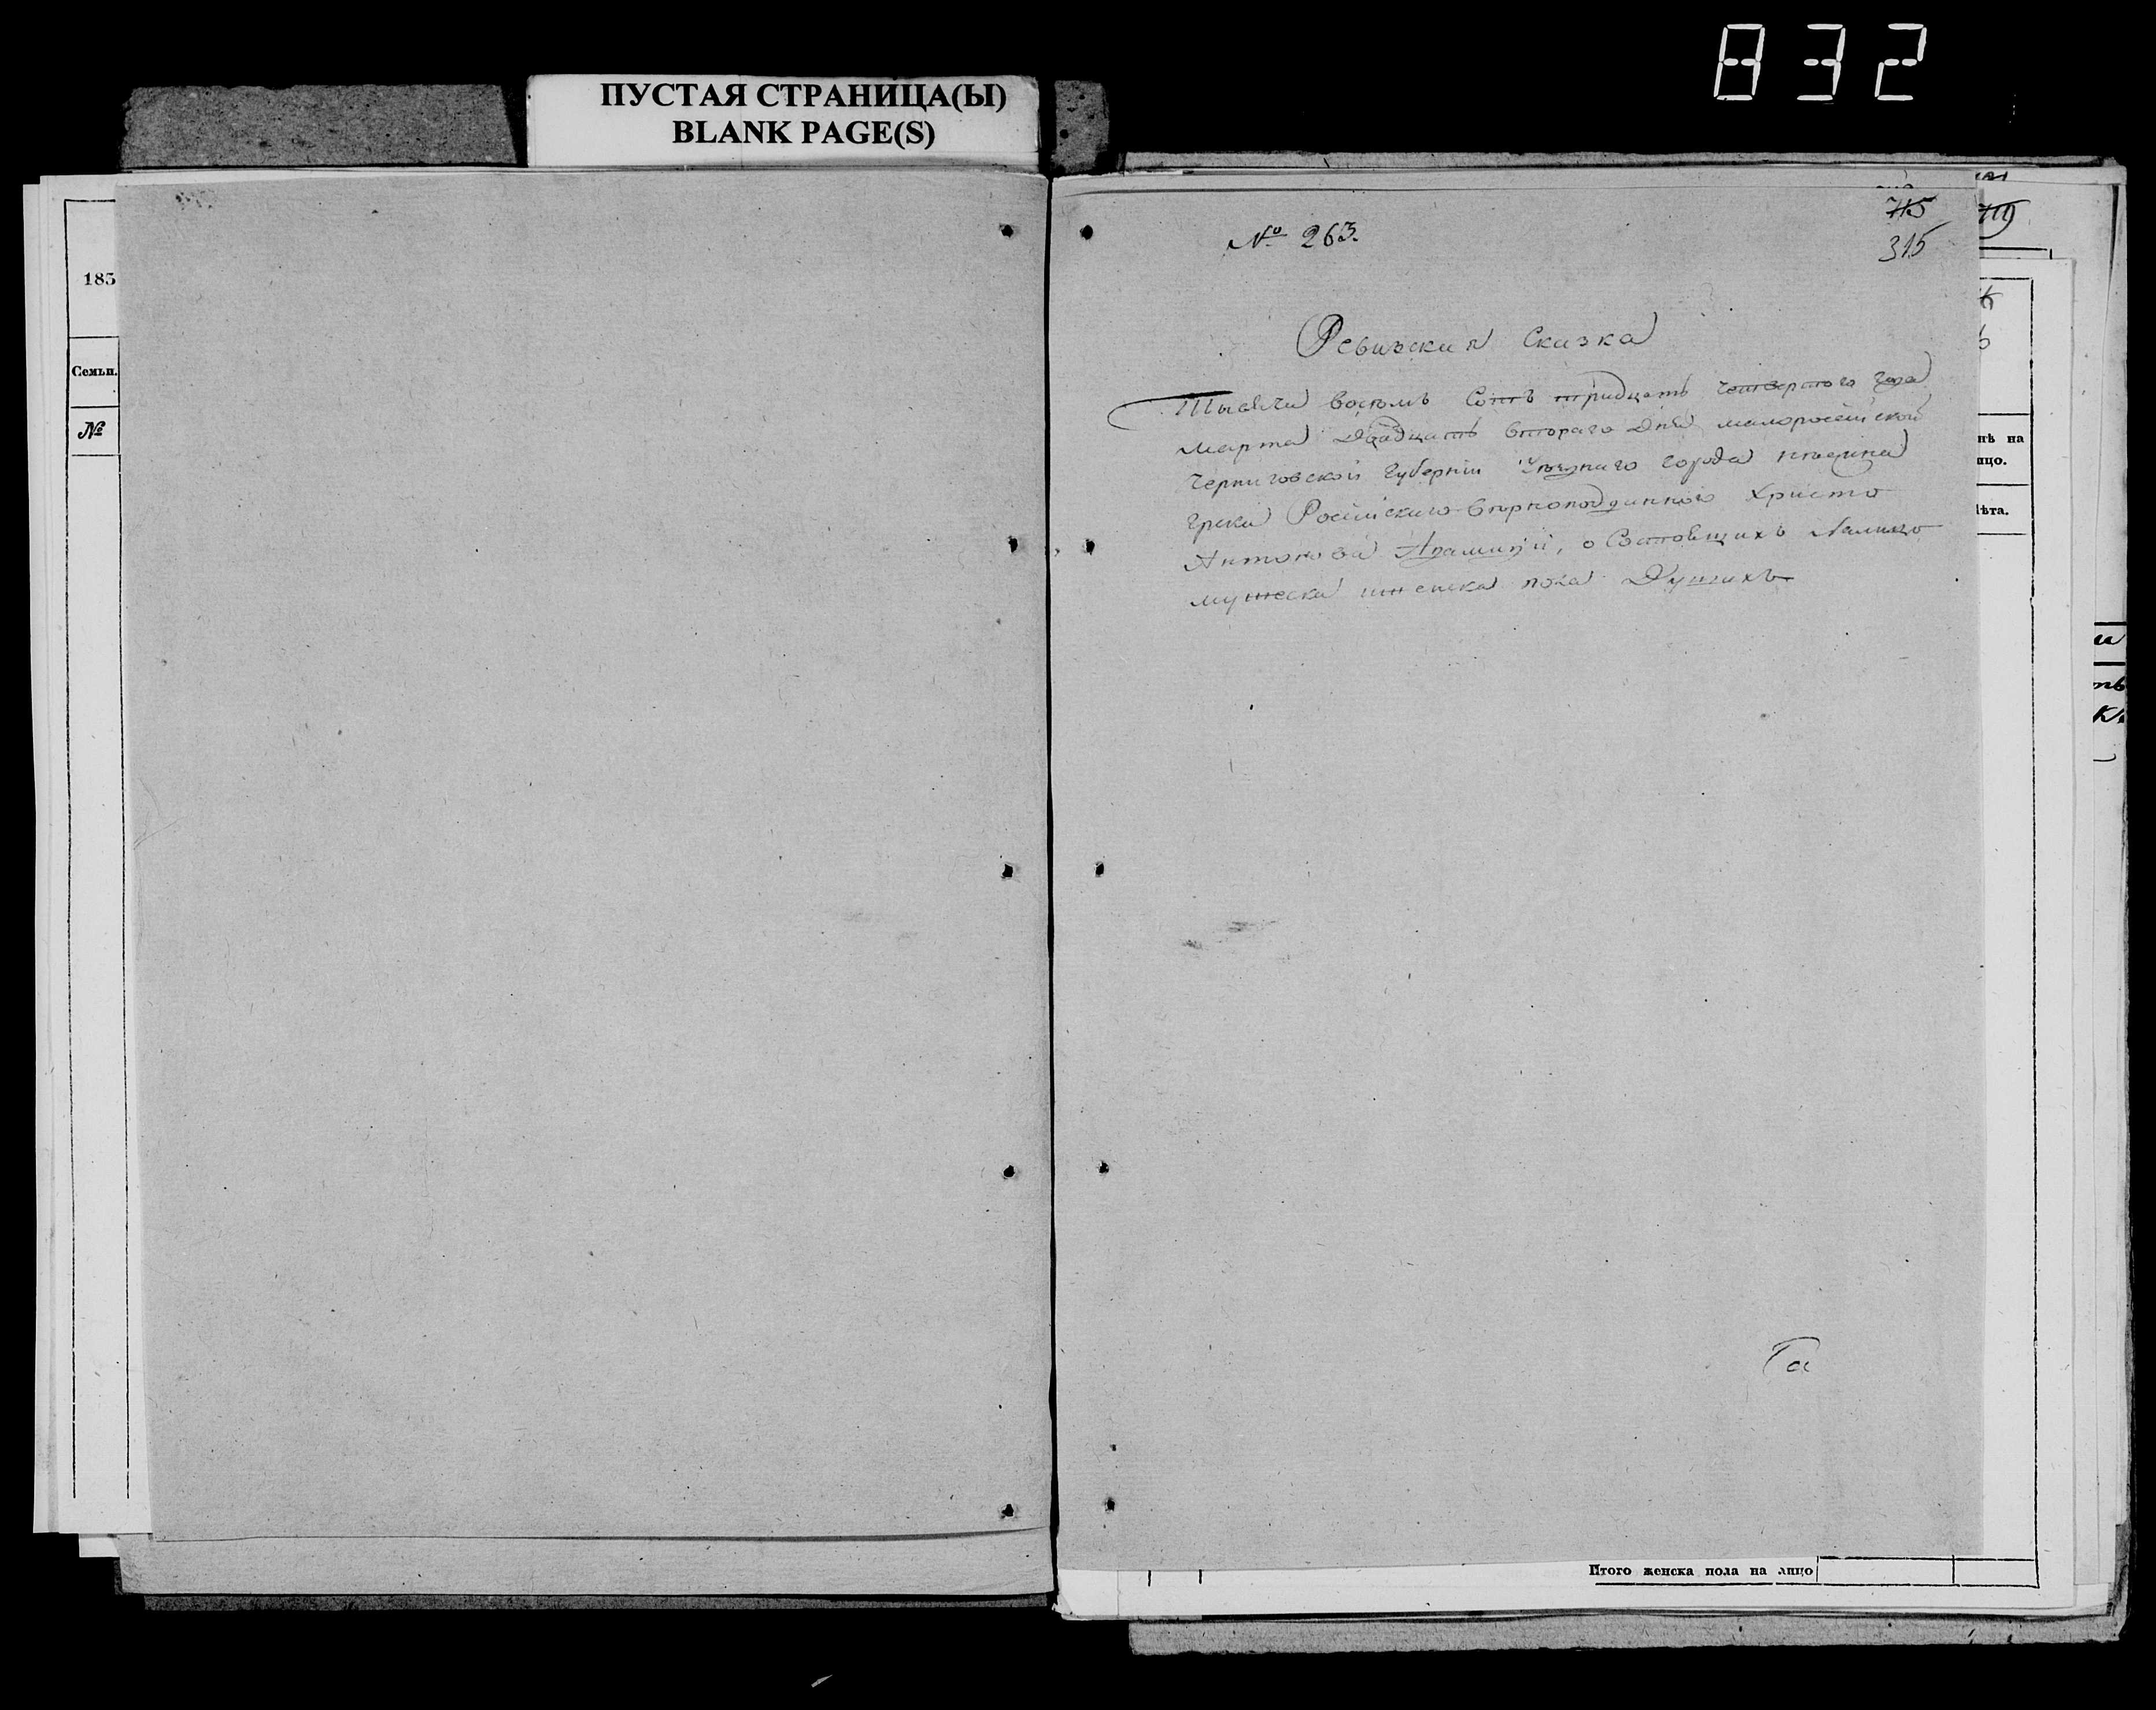 832
ПУСТАЯ СТРАНИЦА(Ы)
BLANK PAGE(S)
185
Семьи.
№
№ 263.
715
719
315
Ревизская Сказка
Тысяча восемь Сотъ тридцать четвертого года
марта Двадцать втораго Дня малоросейской
Черниговской Губерніи Уезнаго города нежина
грека Росейскаго верноподданного Христо
Антонова о Состоящихъ Налицо
мужеска женска пола Душихъ
нѣ на
ицо.
лѣта.
Га
Итого женска пола на лицо